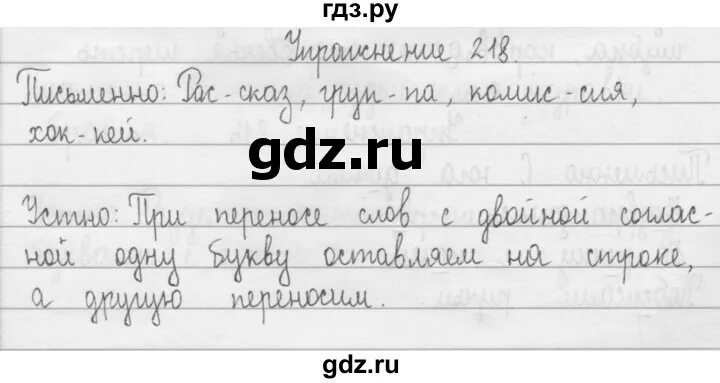 гдз.ру
Упражнение 218.
Письменно: Рас-сказ, груп-па, комис-сия,
хок-кей.
gdz.ru
Устно: При переносе слов с двойной соглас-
ной одну букву оставляем на строке,
а другую переносим.
gdz.ru